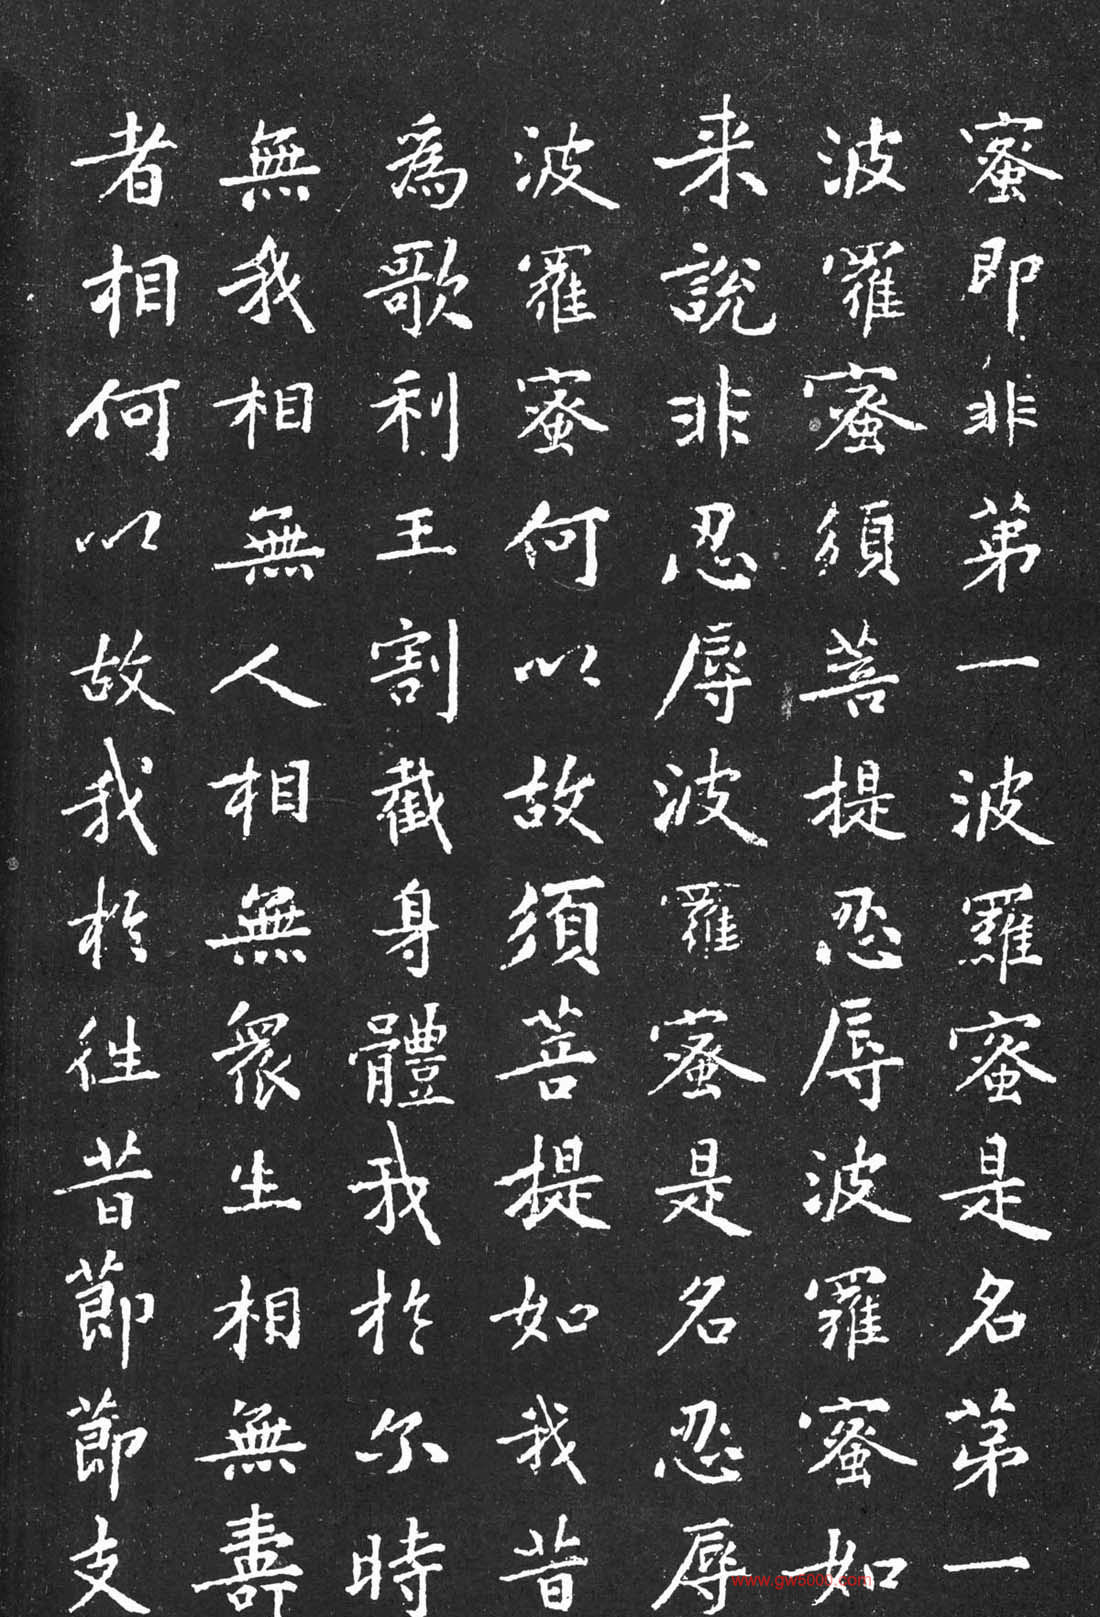 蜜即非苐一波羅蜜是名苐一
波羅蜜須菩提忍辱波羅蜜如
来說非忍辱波羅蜜是名忍辱
波羅蜜何以故須菩提如我昔
為歌利王割截身體我於尓時
無我相無人相無衆生相無壽
者相何以故我於往昔節節支
www.gw5000.com